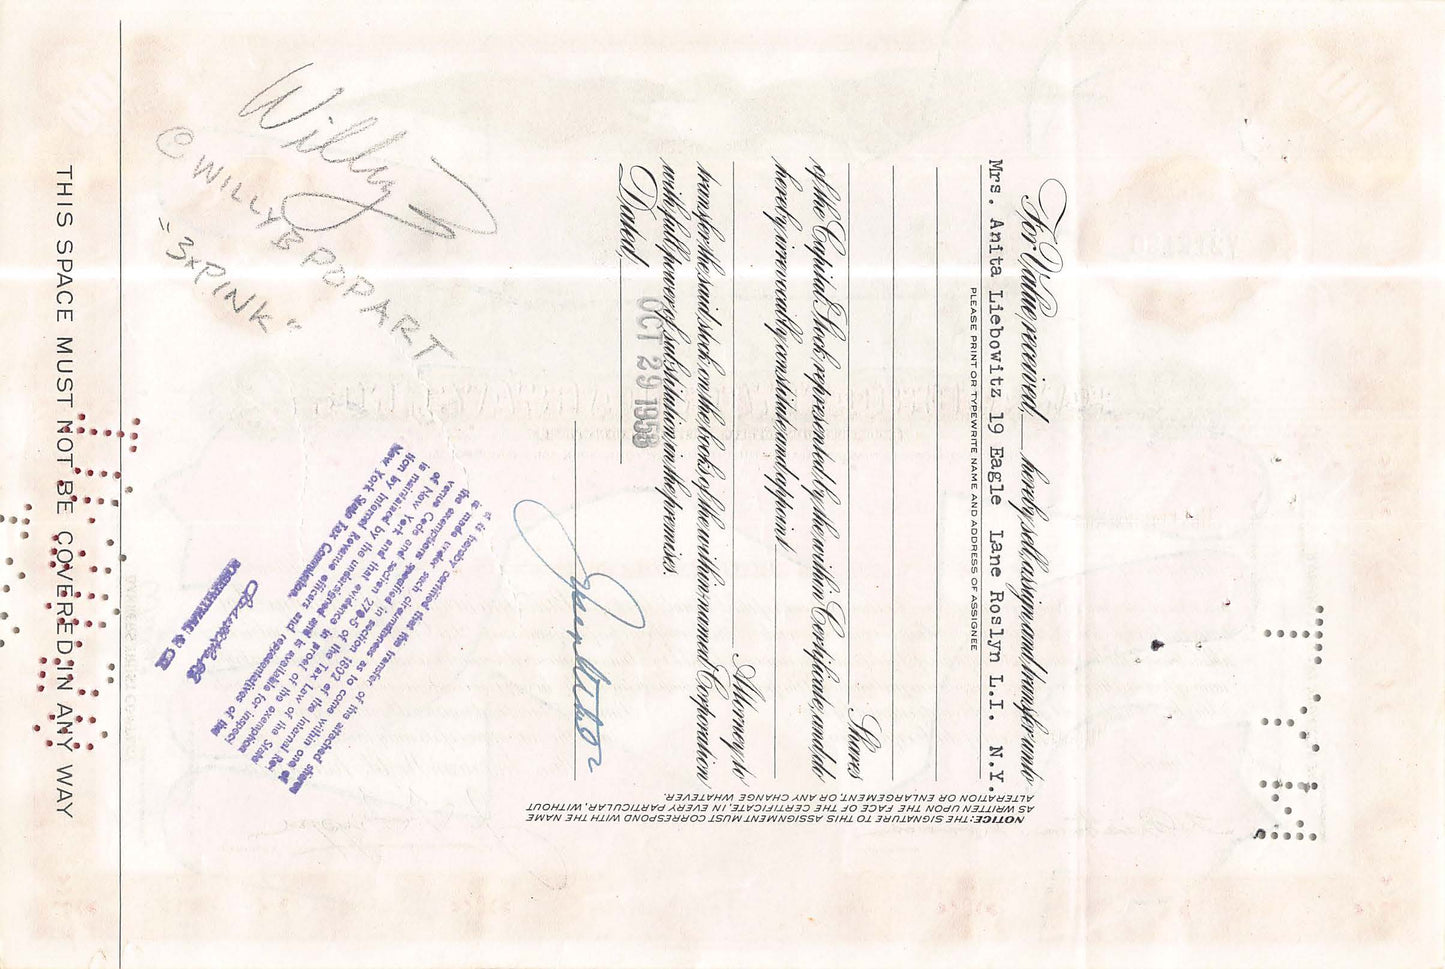 For Value received, hereby sell, assign and transfer unto
Mrs. Anita Liebowitz 19 Eagle Lane Roslyn L.I. N.Y.
PLEASE PRINT OR TYPEWRITE NAME AND ADDRESS OF ASSIGNEE
Shares
of the Capital Stock represented by the within Certificate, and do
hereby irrevocably constitute and appoint
Attorney to
transfer the said stock on the books of the within-named Corporation
with full power of substitution in the premises.
Dated,
OCT 29 1958
NOTICE: THE SIGNATURE TO THIS ASSIGNMENT MUST CORRESPOND WITH THE NAME
AS WRITTEN UPON THE FACE OF THE CERTIFICATE, IN EVERY PARTICULAR, WITHOUT
ALTERATION OR ENLARGEMENT, OR ANY CHANGE WHATEVER.
It is hereby certified that the transfer of the attached share
is made under such circumstances as to come within one of
the exemptions specified in section 1802 of the Internal Re-
venue Code and section 270-5 of the Tax Law of the State
of New York and that evidence in proof of the exemption
is maintained by the undersigned and is available for inspec
tion by Internal Revenue officers and representatives of the
New York State Tax Commission.
Willy
@WILLYBPOPART
"3xPINK"
THIS SPACE MUST NOT BE COVERED IN ANY WAY